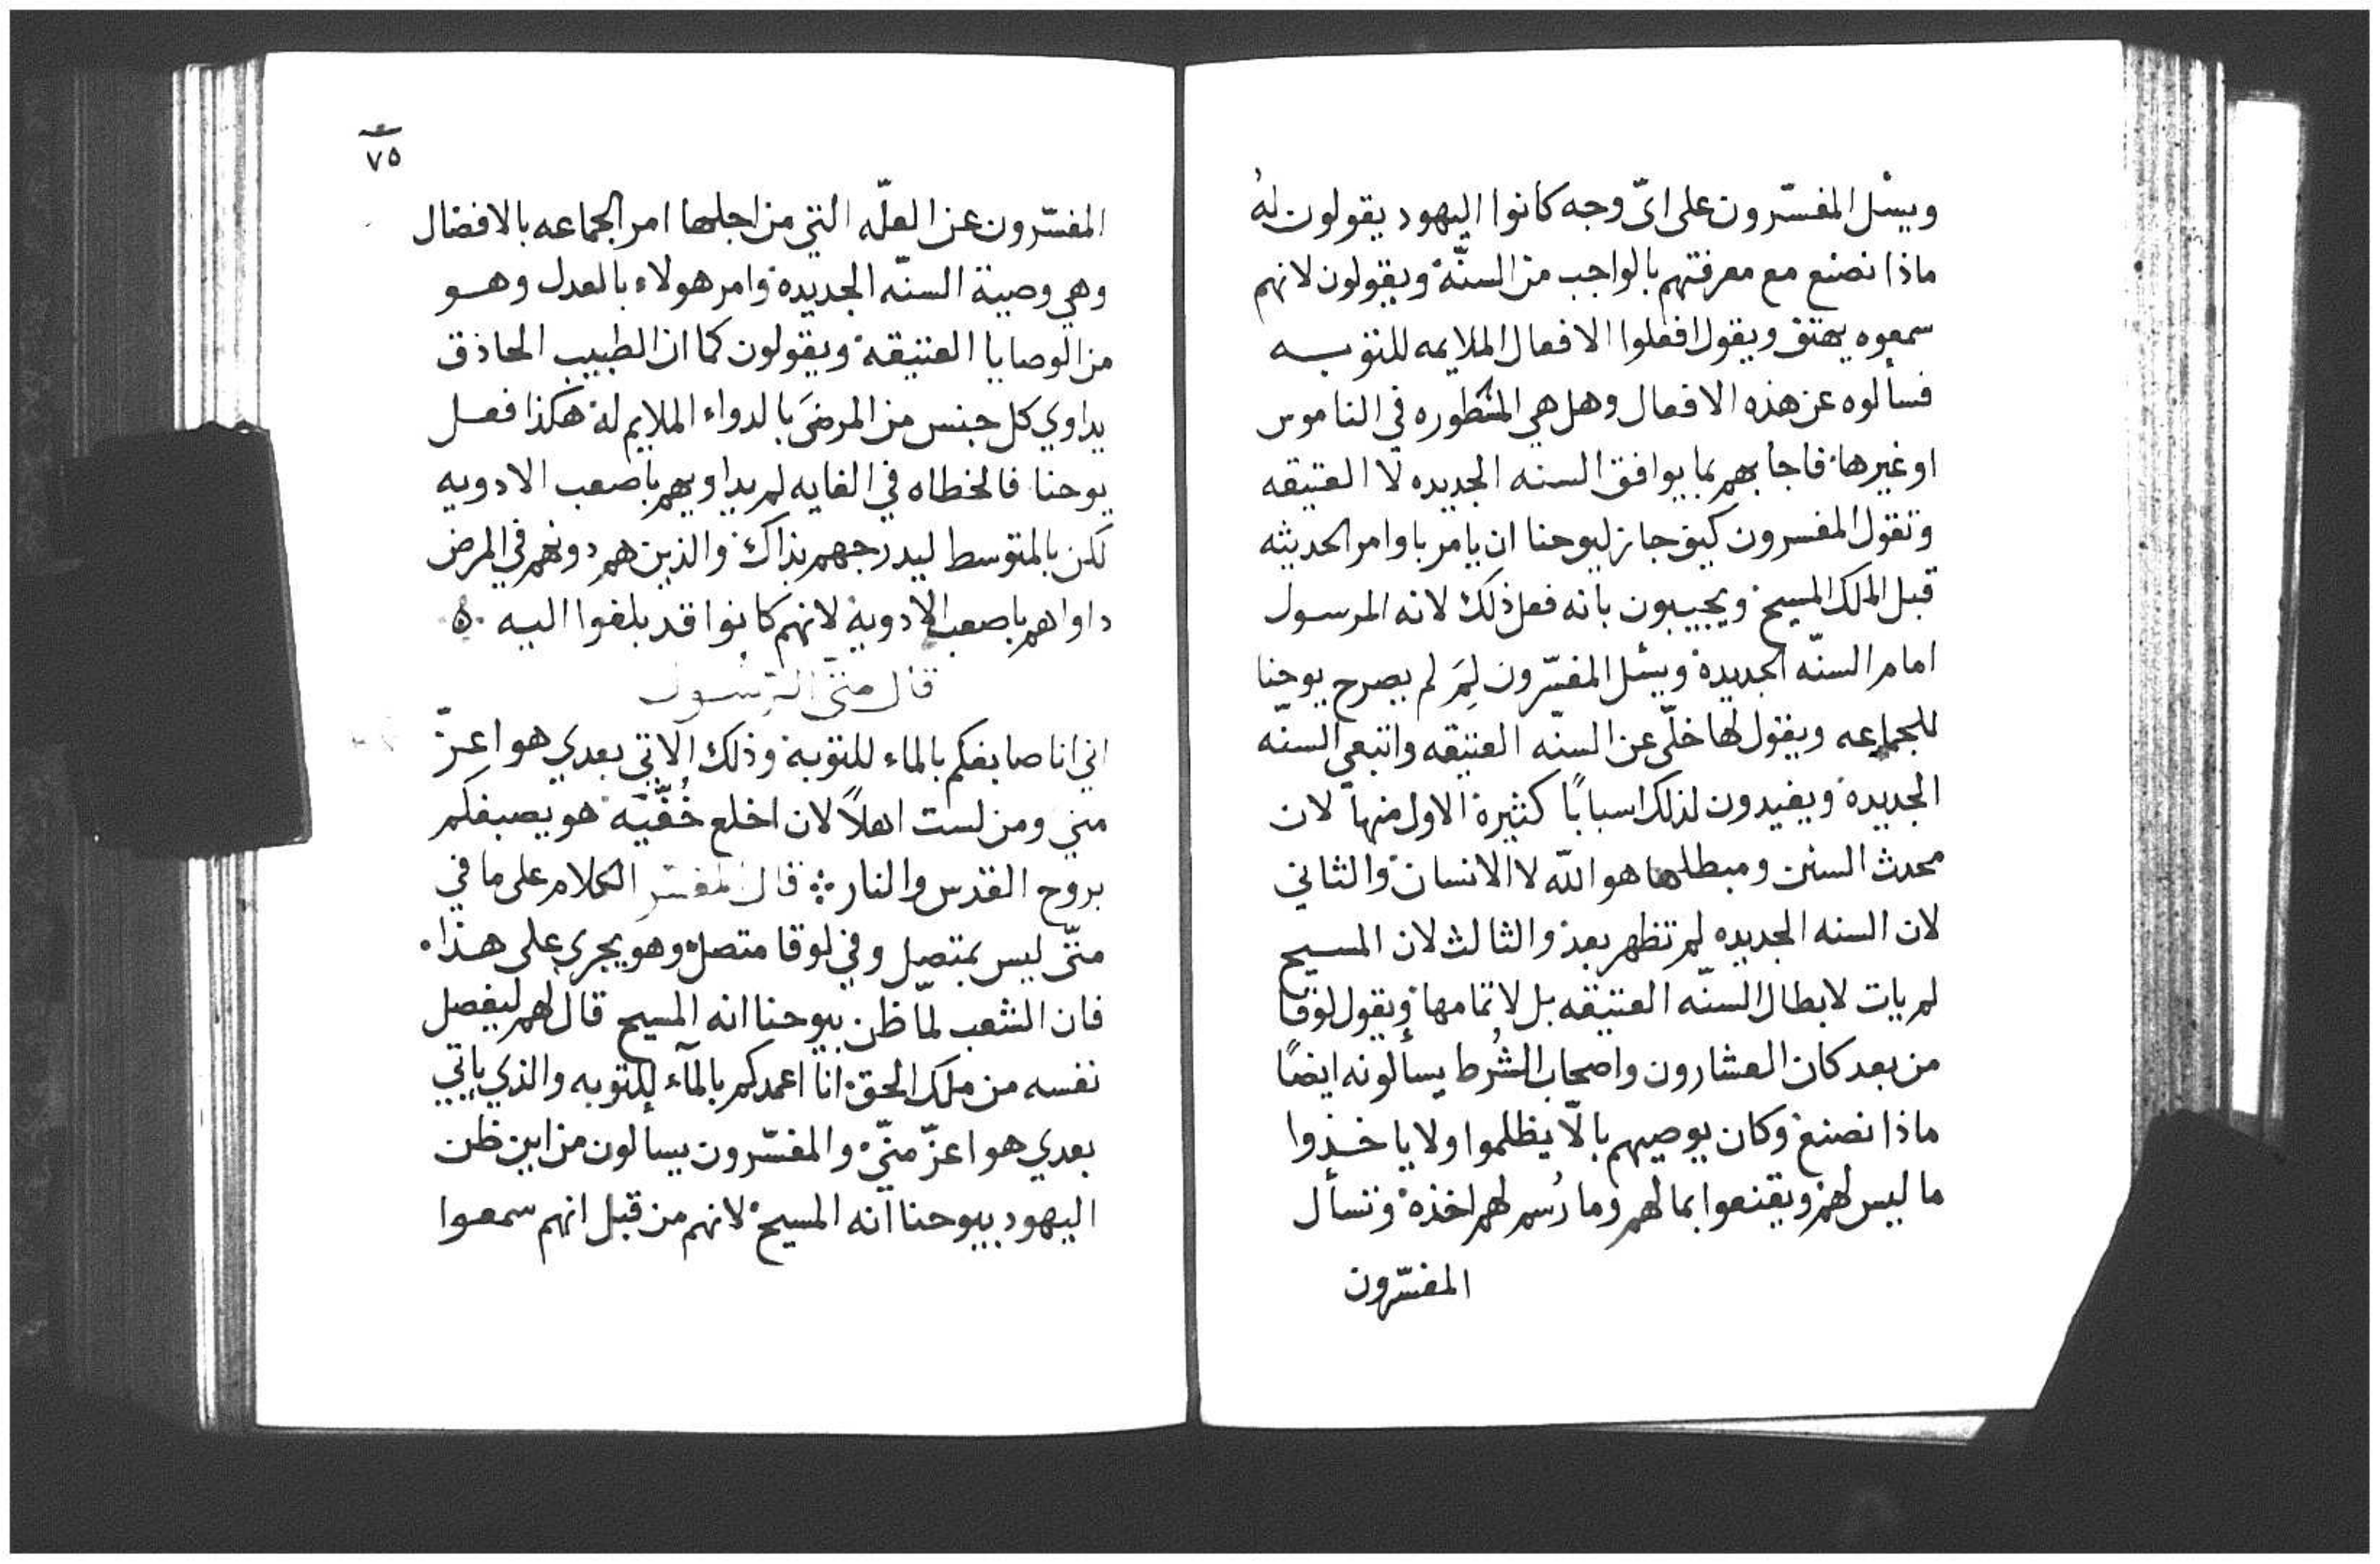 ويسْل المفسّرون على ايّ وجه كانوا اليهود يقولون لهُ
ماذا نصنع مع معرفتهم بالواجب من السنّة ويقولون لانهم
سمعوه يهتف ويقول افعلوا الافعال الملايمه للتوبـــه
فسألوه عن هذه الافعال وهل هي المسطوره في الناموس
او غيرها فاجابهم بما يوافق السنه الجديده لا العتيقه
وتقول المفسرون كيف جاز ليوحنا ان يامر باوامر الحديثه
قبل الملك المسيح ويجيبون بانه فعل ذلك لانه المرسول
امام السنّه الجديدة ويسْل المفسّرون لِمَ لم يصرح يوحنا
للجماعه ويقول لها خلّي عن السنه العتيقه واتبعي السنّه
الجديدة ويفيدون لذلك اسبابًا كثيرة الاول منها لان
محدث السنن ومبطلها هو الله لا الانسان والثاني
لان السنه الجديده لم تظهر بعد والثالث لان المسيح
لم يات لابطال السنّه العتيقه بل لاتمامها ويقول لوقا
من بعد كان العشارون واصحاب الشُرط يسألونه ايضًا
ماذا نصنع وكان يوصيهم بالّا يظلموا ولا ياخـذوا
ما ليس لهم ويقنعوا بما لهم وما رُسم لهم اخذه وتسأل
المفسّرون
٧٥
المفسّرون عن العلّه التي من اجلها امر الجماعه بالافضال
وهي وصية السنّه الجديدة وامر هولاء بالعدل وهــو
من الوصايا العتيقة ويقولون كما ان الطبيب الحاذق
يداوي كل جنس من المرضَى بالدواء الملايم لهُ هكذا فعـل
يوحنا فالخطاه في الغايه لم يداويهم باصعب الادويه
لكن بالمتوسط ليدرجهم بذاك والذين هم دونهم في المرض
داواهم باصعب الادوية لانهم كانوا قد بلغوا اليـه ه
قال متى الرسول
اني انا صابغكم بالماء للتوبة وذلك الاتي بعدي هو اعـزّ
مني ومن لست اهلاً لان اخلع خُفَّيْه هو يصبغكم
بروح القدس والنار ؞ قال المفسر الكلام على ما في
متّى ليس بمتصل وفي لوقا متصل وهو يجري على هـذا
فان الشعب لمّا ظن بيوحنا انه المسيح قال لهم ليفصل
نفسه من ملك الحق انا اعمدكم بالمآء للتوبه والذي ياتي
بعدي هو اعزّ منّي والمفسّرون يسالون من اين ظن
اليهود بيوحنا انه المسيح لانهم من قبل انهم سمعـوا